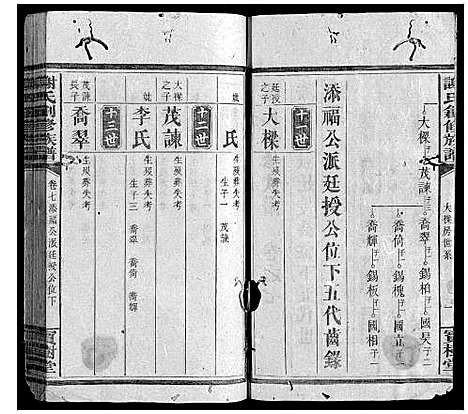 謝氏創修族譜
大樑房世系
寶樹堂
大樑 茂諫 喬翠 錫柏 國昊
喬倘 錫槐 國立
喬輝 錫板 國相
添福公派廷授公位下五代齒錄
十一世
廷授之子 大樑 生歿葬失考
妣 氏 生歿葬失考
生子一 茂諫
十二世
大樑之子 茂諫 生歿葬失考
妣 李氏 生歿葬失考
生子三 喬翠 喬倘 喬輝
十三世
茂諫長子 喬翠 生歿葬失考
謝氏創修族譜
卷七添福公派廷授公位下
寶樹堂